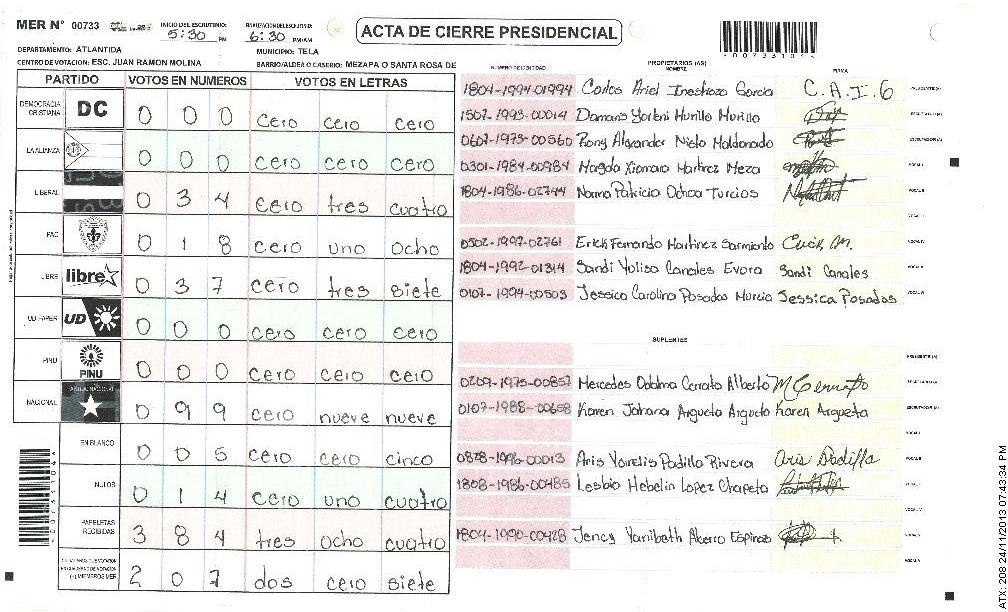 MER N° 00733
INICIO DEL ESCRUTINIO: 5:30 PM
FINALIZACION DEL ESCRUTINIO: 6:30 PM/AM
ACTA DE CIERRE PRESIDENCIAL
DEPARTAMENTO: ATLANTIDA
MUNICIPIO: TELA
CENTRO DE VOTACION: ESC. JUAN RAMON MOLINA
BARRIO/ALDEA O CASERIO: MEZAPA O SANTA ROSA DE
PARTIDO VOTOS EN NUMEROS VOTOS EN LETRAS
DEMOCRACIA CRISTIANA DC 0 0 0 cero cero cero
LA ALIANZA 0 0 0 cero cero cero
LIBERAL 0 3 4 cero tres cuatro
PAC 0 1 8 cero uno ocho
LIBRE libre 0 3 7 cero tres siete
UD FAPER UD 0 0 0 cero cero cero
PINU PINU 0 0 0 cero cero cero
NACIONAL 0 9 9 cero nueve nueve
EN BLANCO 0 0 5 cero cero cinco
NULOS 0 1 4 cero uno cuatro
PAPELETAS RECIBIDAS 3 8 4 tres ocho cuatro
(+) MIEMBROS MER 2 0 7 dos cero siete
NUMERO DE IDENTIDAD PROPIETARIOS (AS) NOMBRE FIRMA
1804-1994-01994 Carlos Ariel Inestroza Garcia C.A.I.G
1507-1993-00014 Damaris Yorleni Murillo Murillo
0607-1973-00560 Rony Alexander Nieto Maldonado
0301-1984-00984 Magda Xiomara Martinez Meza
1804-1986-02744 Norma Patricia Ochoa Turcios
0502-1997-02761 Erick Fernando Martinez Sarmiento Erick M.
1804-1992-01314 Sandi Yulisa Canales Evora Sandi Canales
0107-1994-00503 Jessica Carolina Posadas Murcia Jessica Posadas
SUPLENTES
0209-1975-00857 Mercedes Odalma Cerrato Alberto M Cerrato
0107-1988-00658 Karen Johana Argueta Argueta Karen Argueta
1996-00013 Aris Padilla Rivera Aris Padilla
1808-1986-00485 Lesbia Lopez
1804-1990-00428 Jency Espinoza
ATX: 208 24/11/2013 07:43:34 PM